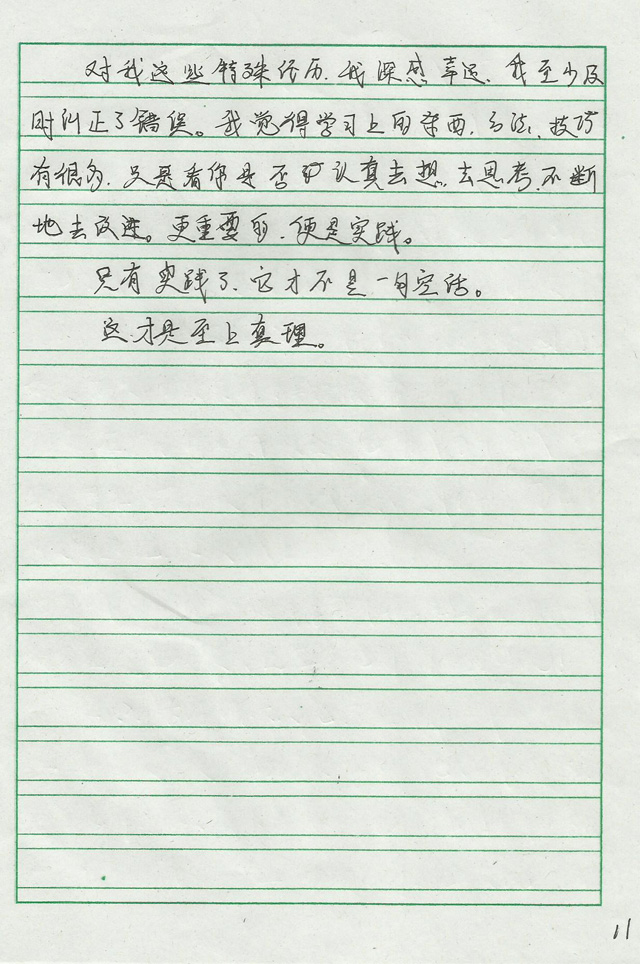 对我这些特殊经历，我深感幸运，我至少及
时纠正了错误。我觉得学习上的东西，方法、技巧
有很多，只是看你是否认真去想，去思考，不断
地去改进。更重要的，便是实践。
只有实践了，它才不是一句空话。
这才是至上真理。
11